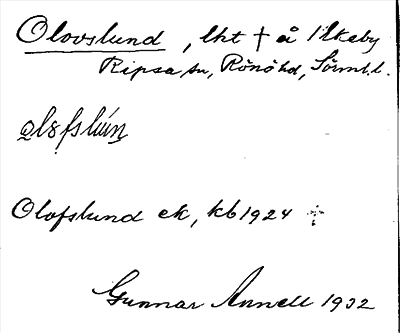 Olovslund, lht † å Ilkeby
Ripsa sn, Rönö hd, Sörml. l.
Olofslund ek, kb 1924 †
Gunnar Annell 1932